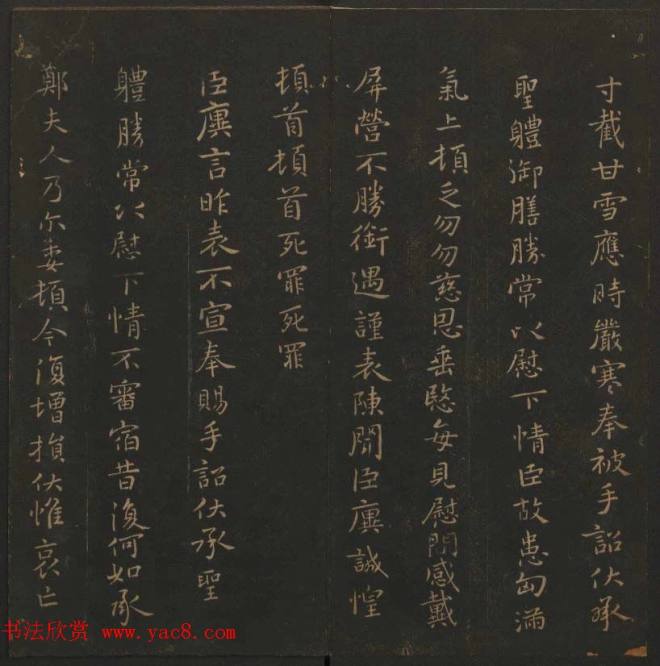 寸截甘雪應時嚴寒奉被手詔伏承
聖軆御膳勝常以慰下情臣故患匈滿
氣上頓乏勿勿慈恩垂愍每見慰問感戴
屏營不勝銜遇謹表陳聞臣廙誠惶
頓首頓首死罪死罪
臣廙言昨表不宣奉賜手詔伏承聖
軆勝常以慰下情不審宿昔復何如承
鄭夫人乃尓委頓今復增損伏惟哀亡
书法欣赏 www.yac8.com